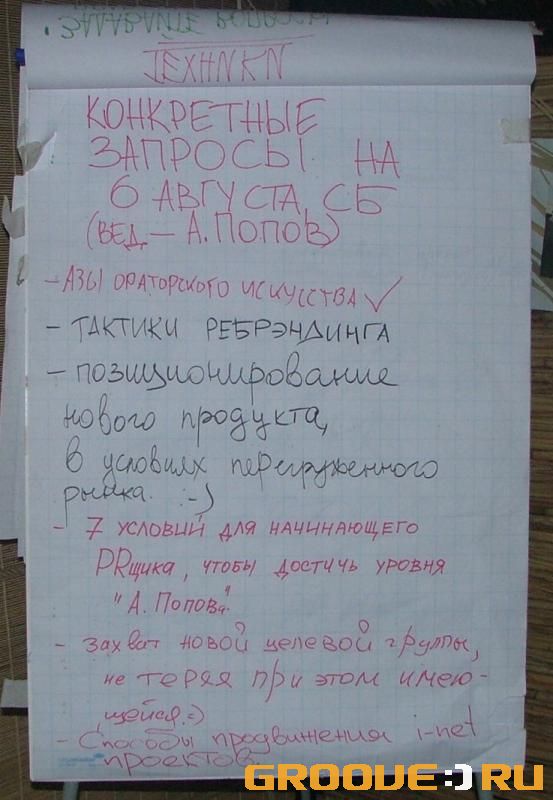 • ЗАДАВАЙТЕ ВОПРОСЫ
ТЕХНИКИ
КОНКРЕТНЫЕ
ЗАПРОСЫ НА
6 АВГУСТА, СБ
(ВЕД. – А. ПОПОВ)
- АЗЫ ОРАТОРСКОГО ИСКУССТВА ✓
- ТАКТИКИ РЕБРЭНДИНГА
- позиционирование
нового продукта,
в условиях перегруженного
рынка. :-)
- 7 УСЛОВИЙ ДЛЯ НАЧИНАЮЩЕГО
PRщика, чтобы достичь уровня
"А. Попова".
- захват новой целевой группы,
не теряя при этом имею-
щейся. =)
- Способы продвижения i-net
проектов.
GROOVE:)RU